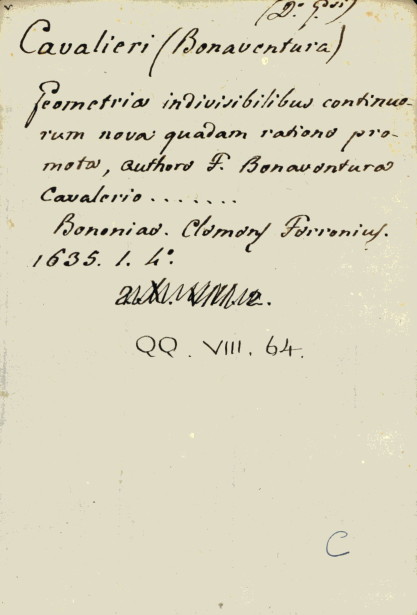 Cavalieri (Bonaventura)
Geometria indivisibilibus continuo-
rum nova quadam ratione pro-
mota, authore F. Bonaventura
Cavalerio .......
Bononiae. Clemens Ferronius.
1635. 1. 4º.
QQ. VIII. 64.
C